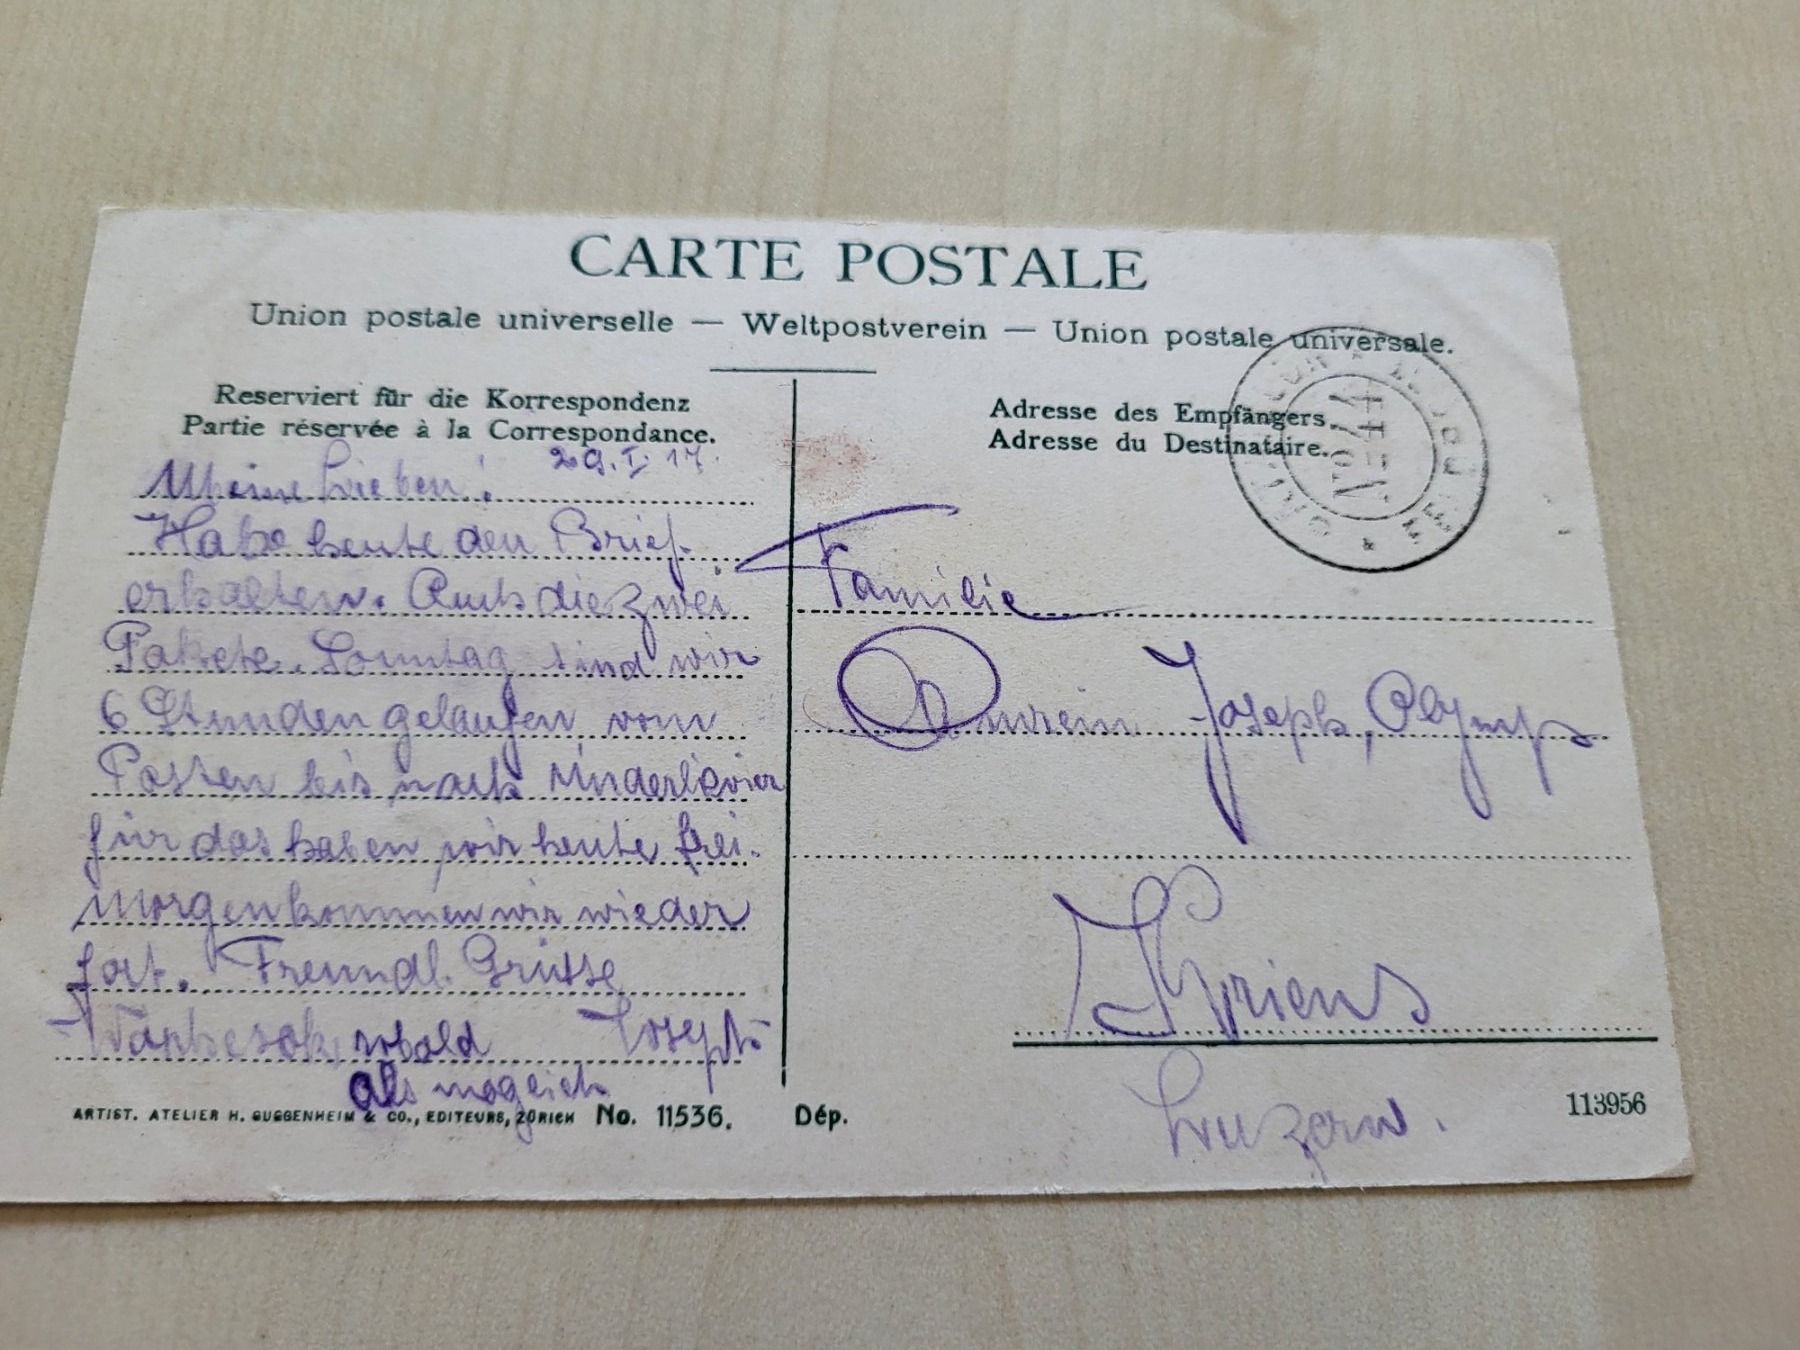 CARTE POSTALE
Union postale universelle — Weltpostverein — Union postale universale.
Reserviert für die Korrespondenz
Partie réservée à la Correspondance.
29. I. 17.
Meine Lieben!
Habe heute den Brief
erhalten. Auch die zwei
Pakete. Sonntag sind wir
6 Stunden gelaufen vom
Posten bis nach
für das haben wir heute frei.
morgen kommen wir wieder
fort. Freundl. Grüsse
sobald Joseph
als mögeich
ARTIST. ATELIER H. GUGGENHEIM & CO., EDITEURS, ZÜRICH No. 11536. Dép.
Adresse des Empfängers.
Adresse du Destinataire.
Familie
Amrein Joseph, Olymp
Kriens
Luzern.
113956